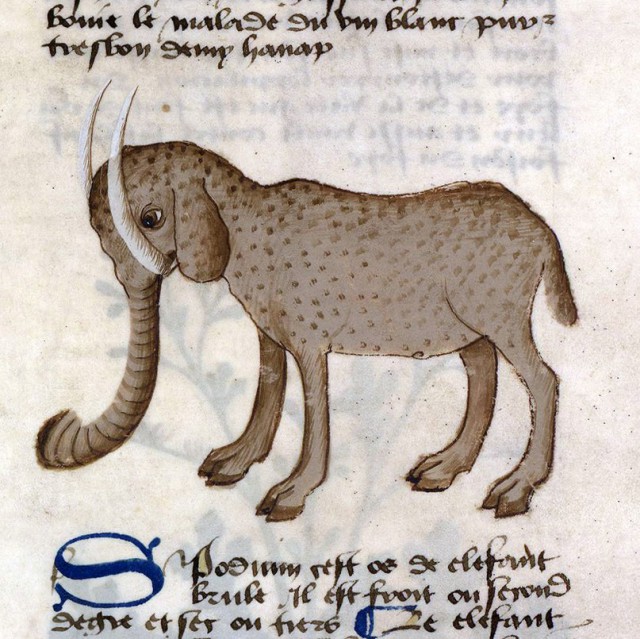 boire le malade du vin blanc puy
tresbon demy hanap
Spodium cest os de elefant
brule il est froit ou second
degre et sec ou tiers Le elefant